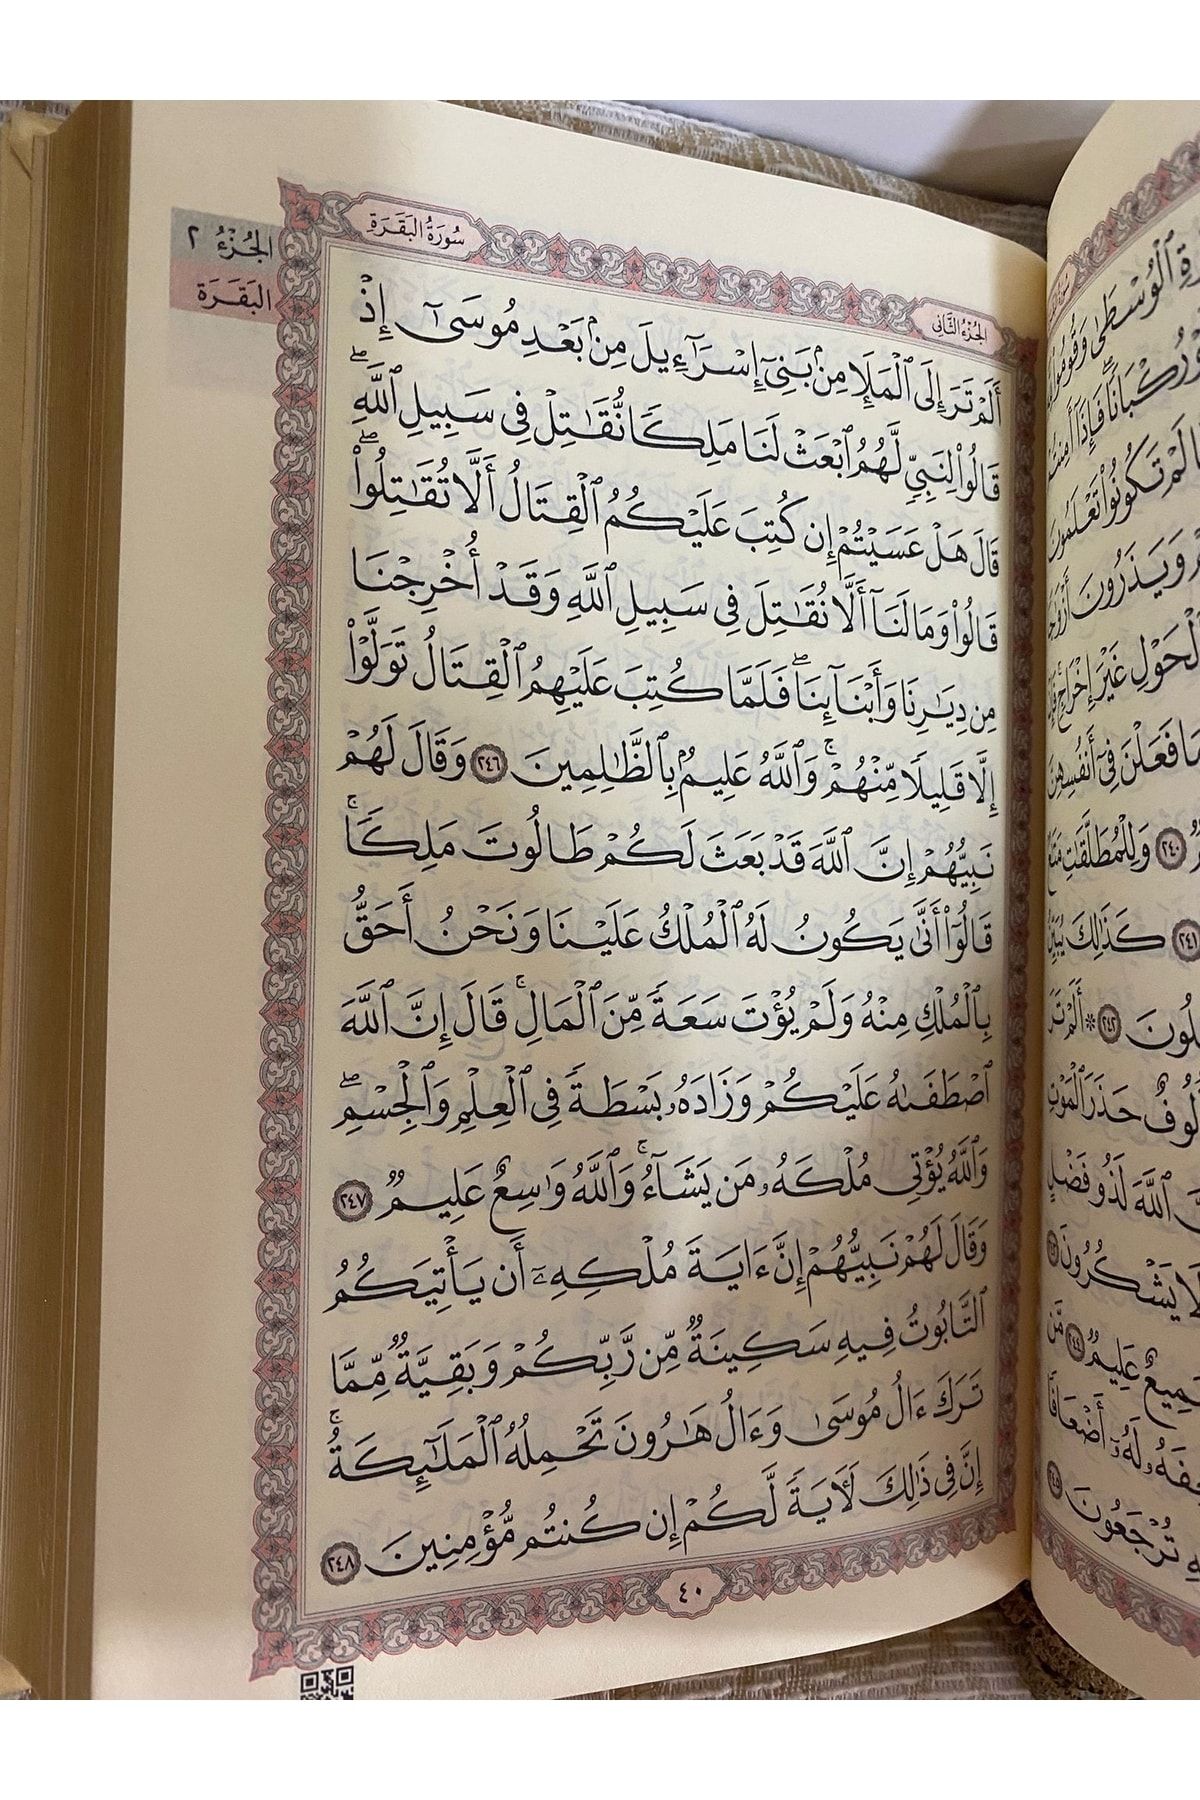 الجُزْءُ ٢
البَقَرَة
سُورَةُ البَقَرَةِ
الجُزْءُ الثَّانِي
أَلَمْ تَرَ إِلَى ٱلْمَلَإِ مِنۢ بَنِىٓ إِسْرَٰٓءِيلَ مِنۢ بَعْدِ مُوسَىٰٓ إِذْ
قَالُوا۟ لِنَبِىٍّ لَّهُمُ ٱبْعَثْ لَنَا مَلِكًا نُّقَٰتِلْ فِى سَبِيلِ ٱللَّهِ ۖ
قَالَ هَلْ عَسَيْتُمْ إِن كُتِبَ عَلَيْكُمُ ٱلْقِتَالُ أَلَّا تُقَٰتِلُوا۟ ۖ
قَالُوا۟ وَمَا لَنَآ أَلَّا نُقَٰتِلَ فِى سَبِيلِ ٱللَّهِ وَقَدْ أُخْرِجْنَا
مِن دِيَٰرِنَا وَأَبْنَآئِنَا ۖ فَلَمَّا كُتِبَ عَلَيْهِمُ ٱلْقِتَالُ تَوَلَّوْا۟
إِلَّا قَلِيلًا مِّنْهُمْ ۗ وَٱللَّهُ عَلِيمٌۢ بِٱلظَّٰلِمِينَ ٢٤٦ وَقَالَ لَهُمْ
نَبِيُّهُمْ إِنَّ ٱللَّهَ قَدْ بَعَثَ لَكُمْ طَالُوتَ مَلِكًا ۚ
قَالُوٓا۟ أَنَّىٰ يَكُونُ لَهُ ٱلْمُلْكُ عَلَيْنَا وَنَحْنُ أَحَقُّ
بِٱلْمُلْكِ مِنْهُ وَلَمْ يُؤْتَ سَعَةً مِّنَ ٱلْمَالِ ۚ قَالَ إِنَّ ٱللَّهَ
ٱصْطَفَىٰهُ عَلَيْكُمْ وَزَادَهُۥ بَسْطَةً فِى ٱلْعِلْمِ وَٱلْجِسْمِ ۖ
وَٱللَّهُ يُؤْتِى مُلْكَهُۥ مَن يَشَآءُ ۚ وَٱللَّهُ وَٰسِعٌ عَلِيمٌ ٢٤٧
وَقَالَ لَهُمْ نَبِيُّهُمْ إِنَّ ءَايَةَ مُلْكِهِۦٓ أَن يَأْتِيَكُمُ
ٱلتَّابُوتُ فِيهِ سَكِينَةٌ مِّن رَّبِّكُمْ وَبَقِيَّةٌ مِّمَّا
تَرَكَ ءَالُ مُوسَىٰ وَءَالُ هَٰرُونَ تَحْمِلُهُ ٱلْمَلَٰٓئِكَةُ ۚ
إِنَّ فِى ذَٰلِكَ لَءَايَةً لَّكُمْ إِن كُنتُم مُّؤْمِنِينَ ٢٤٨
٤٠
ٱلْوُسْطَىٰ وَقُومُوا۟
رُكْبَانًا ۖ فَإِذَآ أَمِنتُمْ
لَمْ تَكُونُوا۟ تَعْلَمُونَ
وَيَذَرُونَ أَزْوَٰجًا
ٱلْحَوْلِ غَيْرَ إِخْرَاجٍ ۚ
فَعَلْنَ فِىٓ أَنفُسِهِنَّ
٢٤٠ وَلِلْمُطَلَّقَٰتِ مَتَٰعٌۢ
٢٤١ كَذَٰلِكَ يُبَيِّنُ
٢٤٢ ۞ أَلَمْ تَرَ
حَذَرَ ٱلْمَوْتِ
ٱللَّهَ لَذُو فَضْلٍ
لَا يَشْكُرُونَ
عَلِيمٌ ٢٤٤ مَّن
لَهُۥٓ أَضْعَافًا
تُرْجَعُونَ ٢٤٥